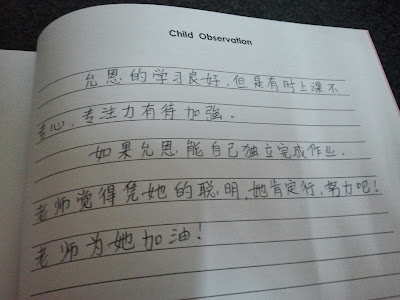 Child Observation
允恩的学习良好,但是有时上课不
专心,专注力有待加强.
如果允恩能自己独立完成作业.
老师觉得凭她的聪明,她肯定行,努力吧!
老师为她加油!